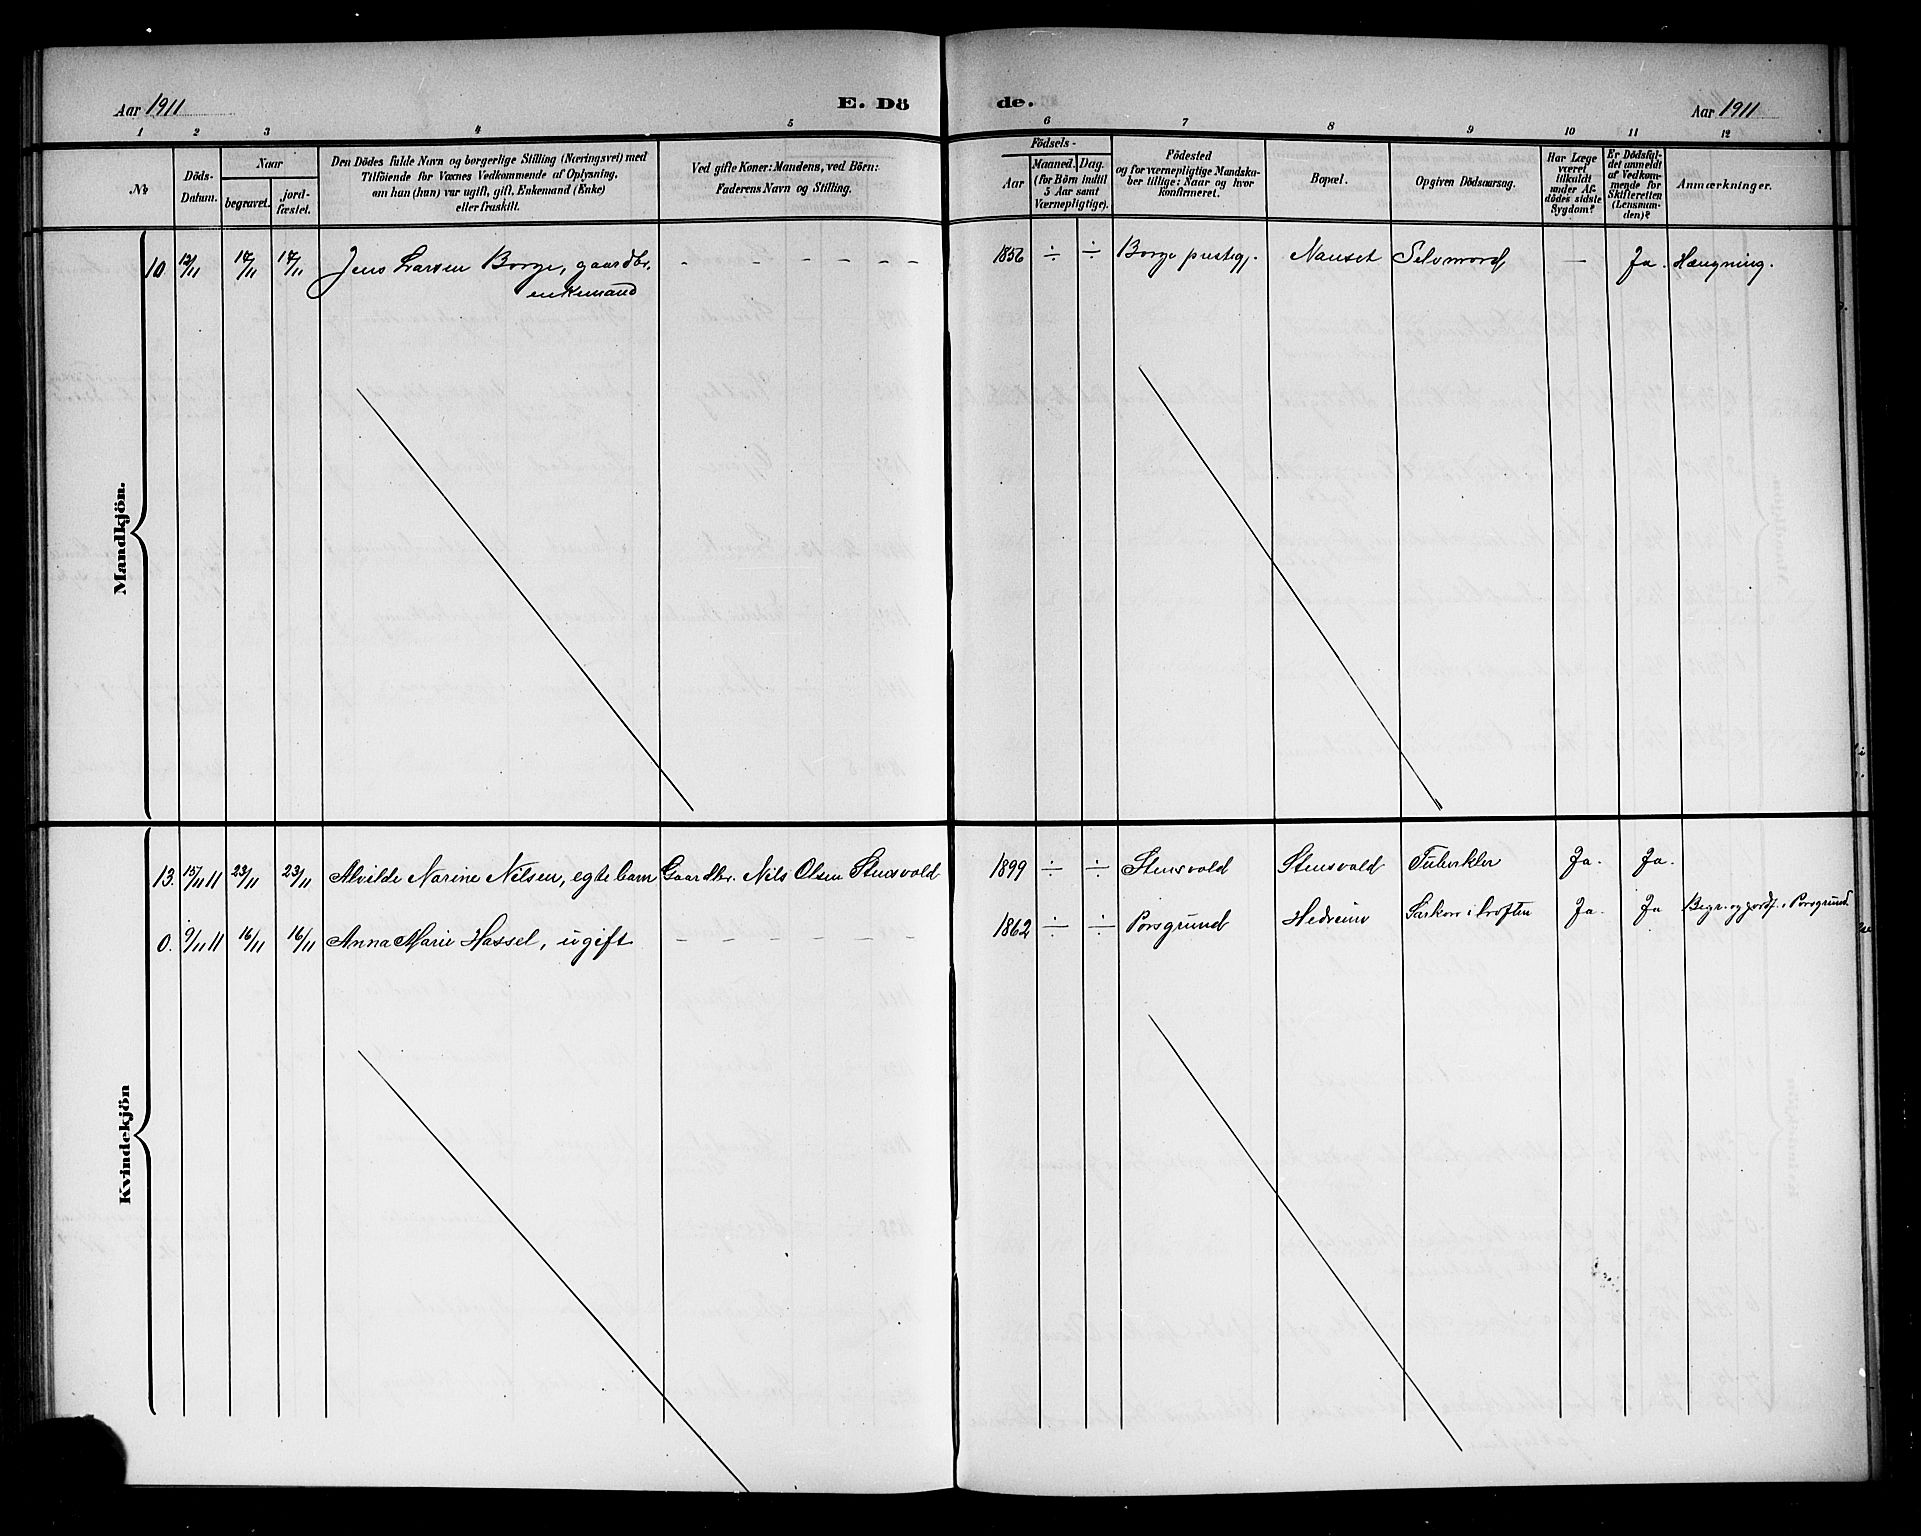 Aar 1911
E. Dö
de.
Aar 1911
1 2 3 4 5 6 7 8 9 10 11 12
No
Döds-
Datum.
Naar
begravet.
jord-
fæstet.
Den Dödes fulde Navn og borgerlige Stilling (Næringsvei) med
Tilföiende for Voxnes Vedkommende af Oplysning,
om han (hun) var ugift, gift, Enkemand (Enke)
eller fraskilt.
Ved gifte Koner: Mandens, ved Börn:
Faderens Navn og Stilling.
Födsels-
Aar
Maaned. Dag.
(for Börn indtil
5 Aar samt
Værnepligtige).
Födested
og for værnepligtige Mandska-
ber tillige: Naar og hvor
konfirmeret.
Bopæl.
Opgiven Dödsaarsag.
Har Læge
været
tilkaldt
under Af-
dödes sidste
Sygdom?
Er Dödsfal-
det anmeldt
af Vedkom-
mende for
Skifteretten
(Lensman-
den)?
Anmærkninger.
Mandkjön.
10 12/11 17/11 17/11 Jens Larsen Borge, gaardbr. - - - - - - - 1856 ÷ ÷ Borge prestegj. Nanset Selvmord — Ja. Hængning.
enkemand
Kvindekjön
13. 15/11 11 23/11 23/11 Alvilde Marine Nilsen, egte barn Gaardbr. Nils Olsen Stensvold 1899 ÷ ÷ Stensvold Stensvold Tuberkler Ja. Ja.
0. 9/11 11 16/11 16/11 Anna Marie Hassel, ugift - - - - - - 1862 ÷ ÷ Porsgrund Hedrum Sarkom i hoften Ja. Ja Begr. og jordf. i Porsgrund